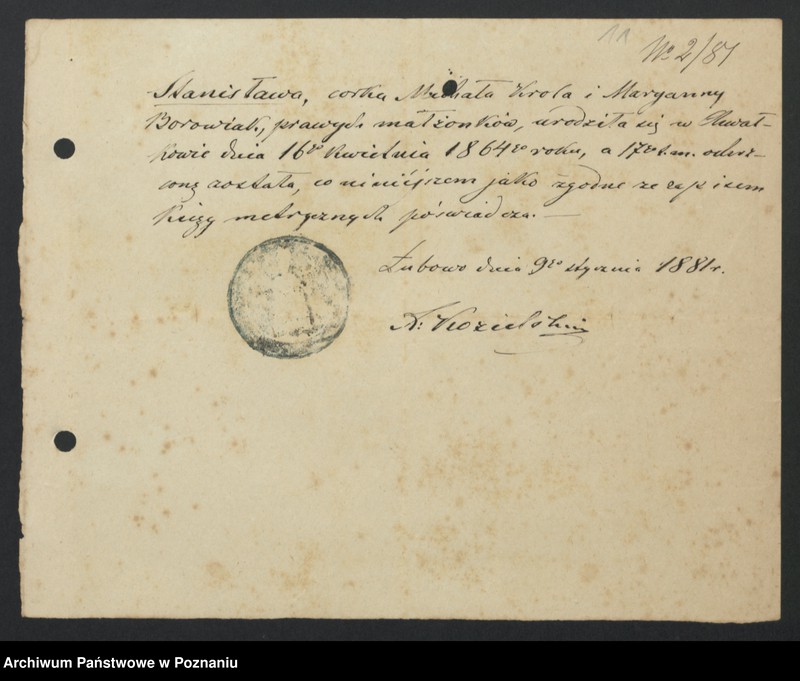 11
No 2/81
Stanisława, córka Michała Krola i Maryanny
Borowiak, prawych małżonków, urodziła się w Chwał-
kowie dnia 16go Kwietnia 1864go roku, a 17go t.m. ochrz-
coną została, co niniejszem jako zgodne ze spisem
Księgi metrycznych poświadcza. —
Łubowo dnia 9go stycznia 1881r.
A: Kozielski
Archiwum Państwowe w Poznaniu